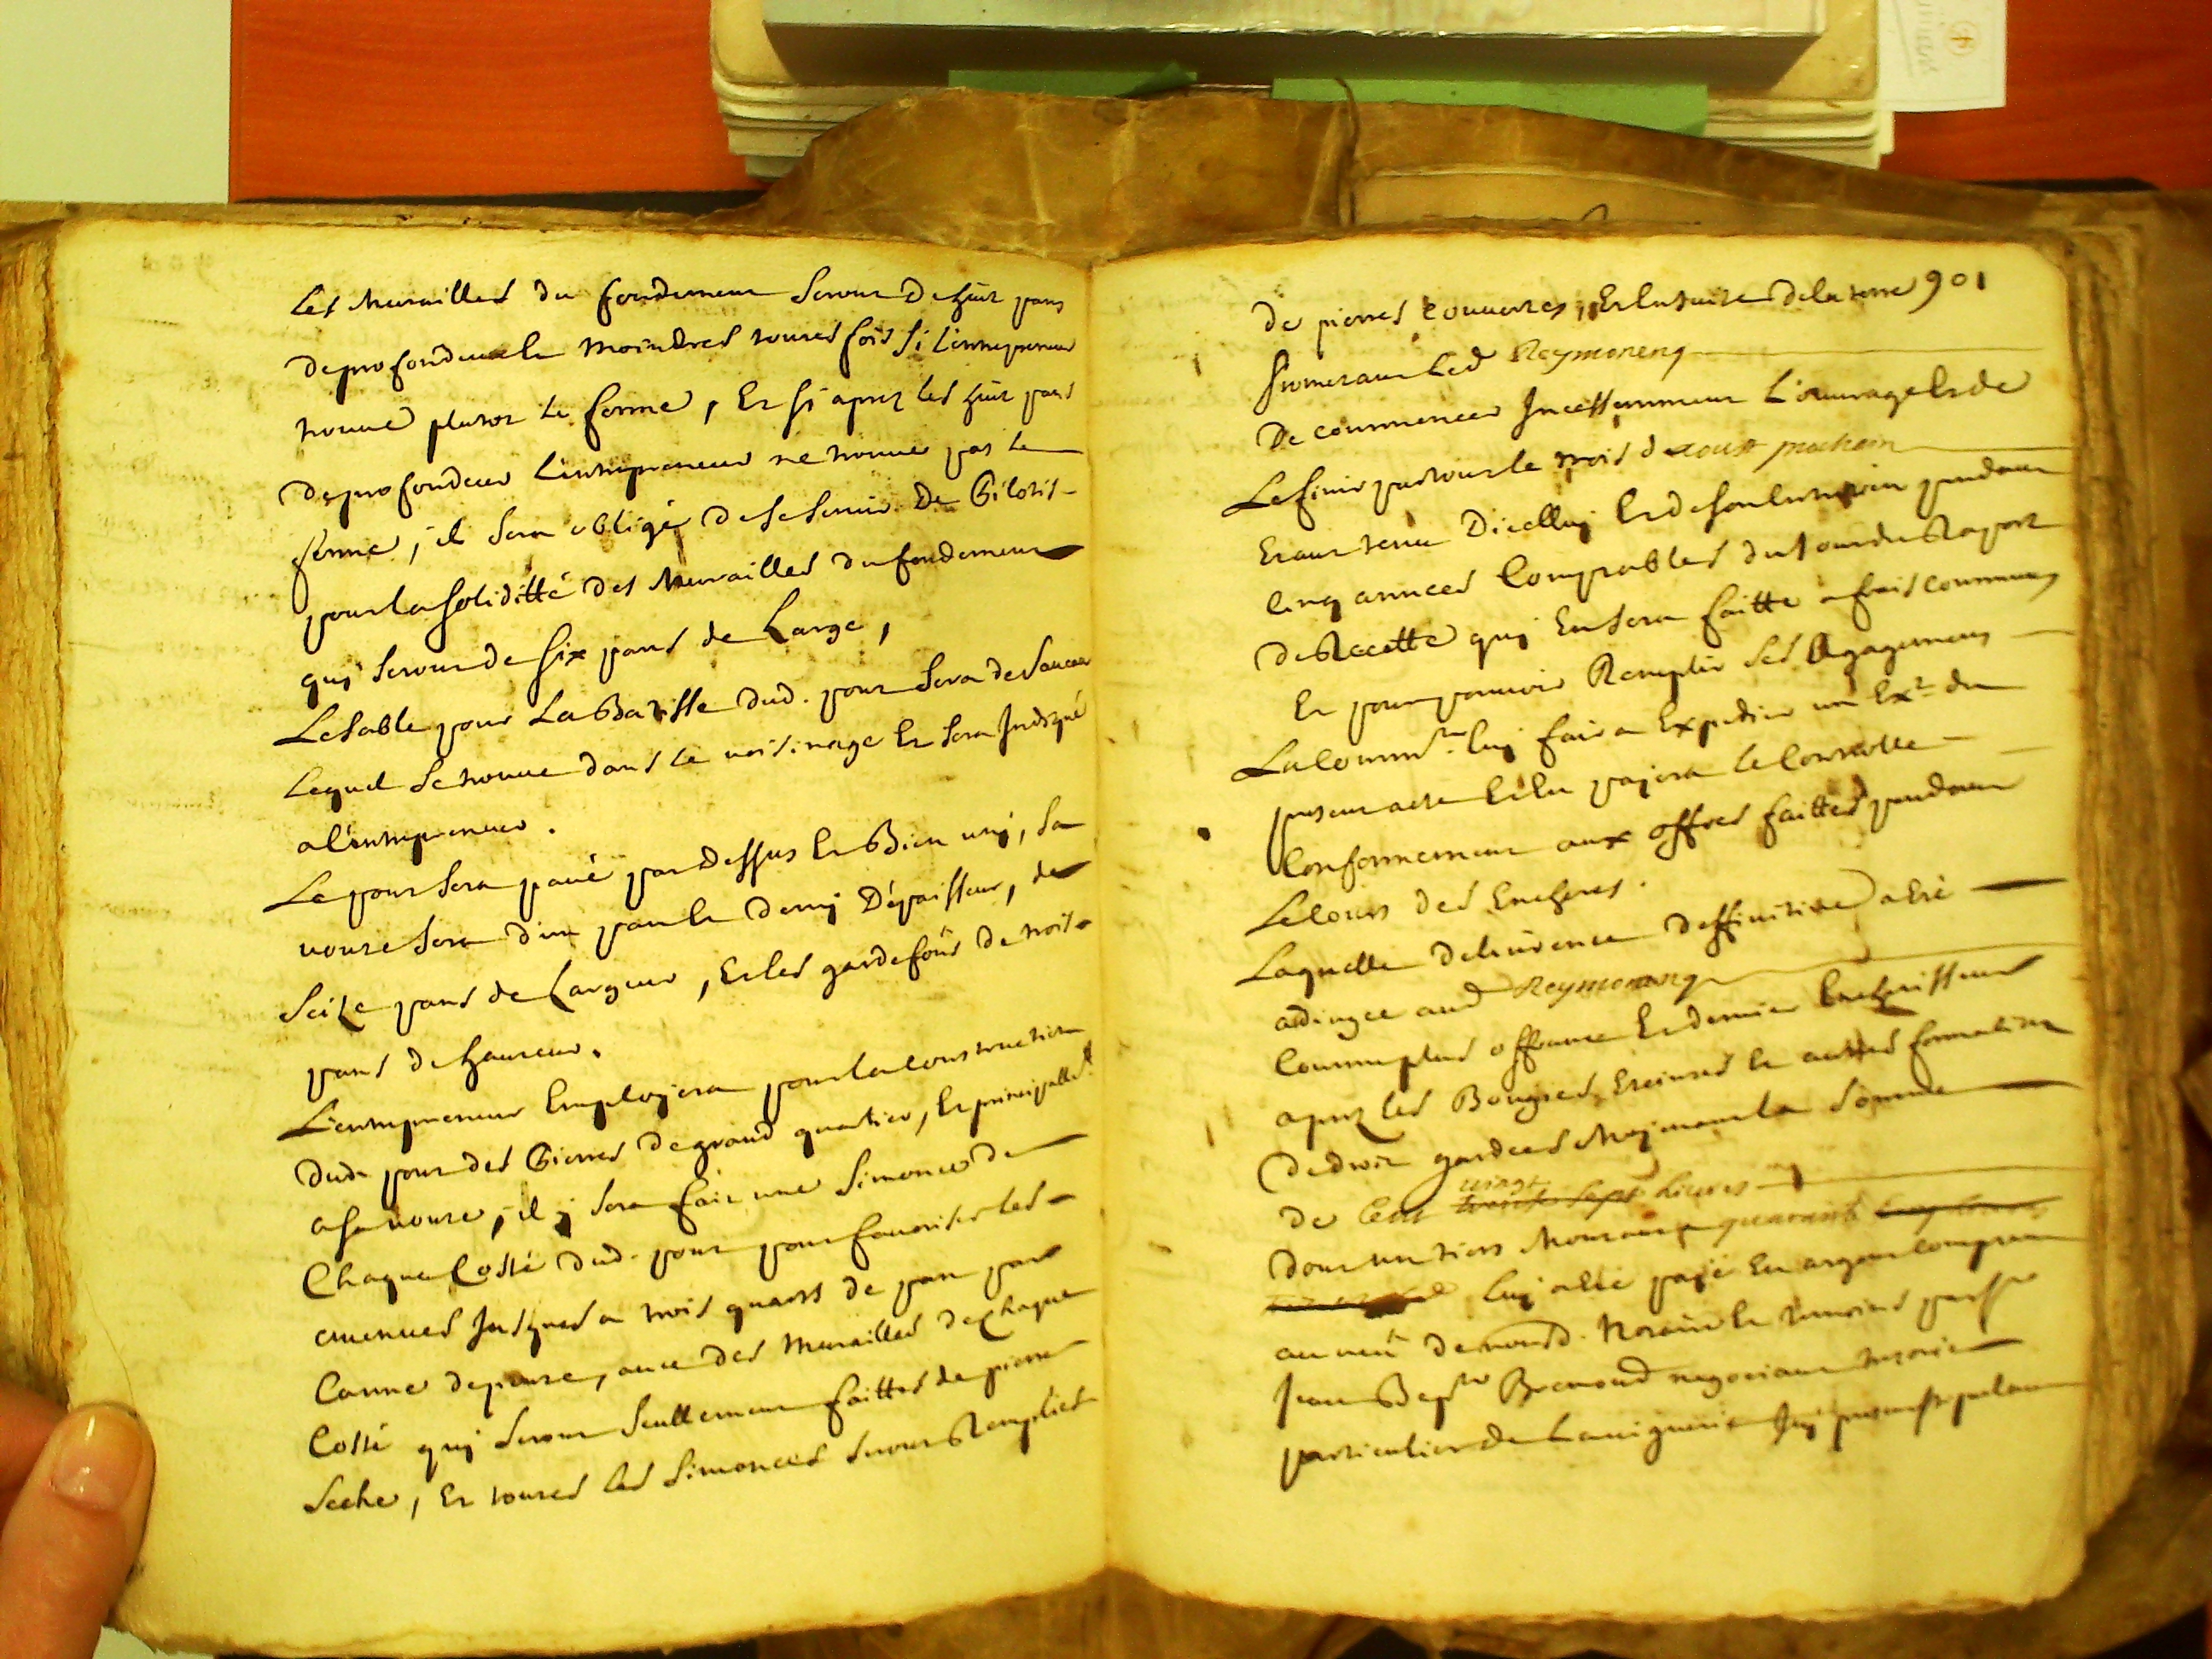 Les Murailles du fondement seront de huit pans
de profondeur la moindres toutes fois si l'entrepreneur
trouve plutot le ferme, Et si aprez les huit pans
de profondeur L'entrepreneur ne trouve pas le
ferme, il sera obligé de se servir de Pilotis
pour la soliditté des Murailles du fondement
qui seront de six pans de Large,
Le sable pour La Batisse dud. pont sera de
Lequel se trouve dans le voisinage Et sera Indiqué
a l'entrepreneur.
Le pont sera pavé par Dessus Et Bien uny, sa
voute sera d'un pan et demy D'épaisseur, de
seize pans de Largeur, Et les gardefous de trois
pans de hauteur.
L'entrepreneur Employera pour la construction
dud. pont des Pierres de grand quartier, Et principallemt
a sa voute, il y sera fait une Simonce de
Chaque Costé dud. pont pour favoriser les
avenues Jusques a trois quarts de pan par
Canne de pente, avec des Murailles de Chaque
Costé qui seront seullement faittes de pierre
seche, Et toutes les Simonces seront Remplies
de pierres couvertes, Et Ensuite de la terre 901
Promettant led Reymoneng
De commencer Incessamment L'ouvrage Et de
Le finir par tout le mois d'aoust prochain
Et aura tenu D'icelluy Et de son Entretien pendant
Cinq années Comptables du Jour du Raport
de Recette qui En sera faitte a frais communs
Et pour pouvoir Remplir ses Engagements
La commté luy faira Expedier un Ext du
present acte Et En payera le Controlle
Conformement aux offres faittes pendant
Le cours des Encheres.
Laquelle delivrance deffinitive a Eté
adjugée aud Reymoneng
Comme plus offrant Et dernier Encherisseur
aprez les Bougies Eteintes Et autres formalites
De droit gardées Moyenant la somme
de Cent vingt trente sept Livres
Dont un tiers Montant quarante
Luy a Eté payé En argent comptant
au veu de nousd. Notaire Et temoins par sr
Jean Bapte Bremond negociant tresorier
particulier de La viguerie Icy present stipulant